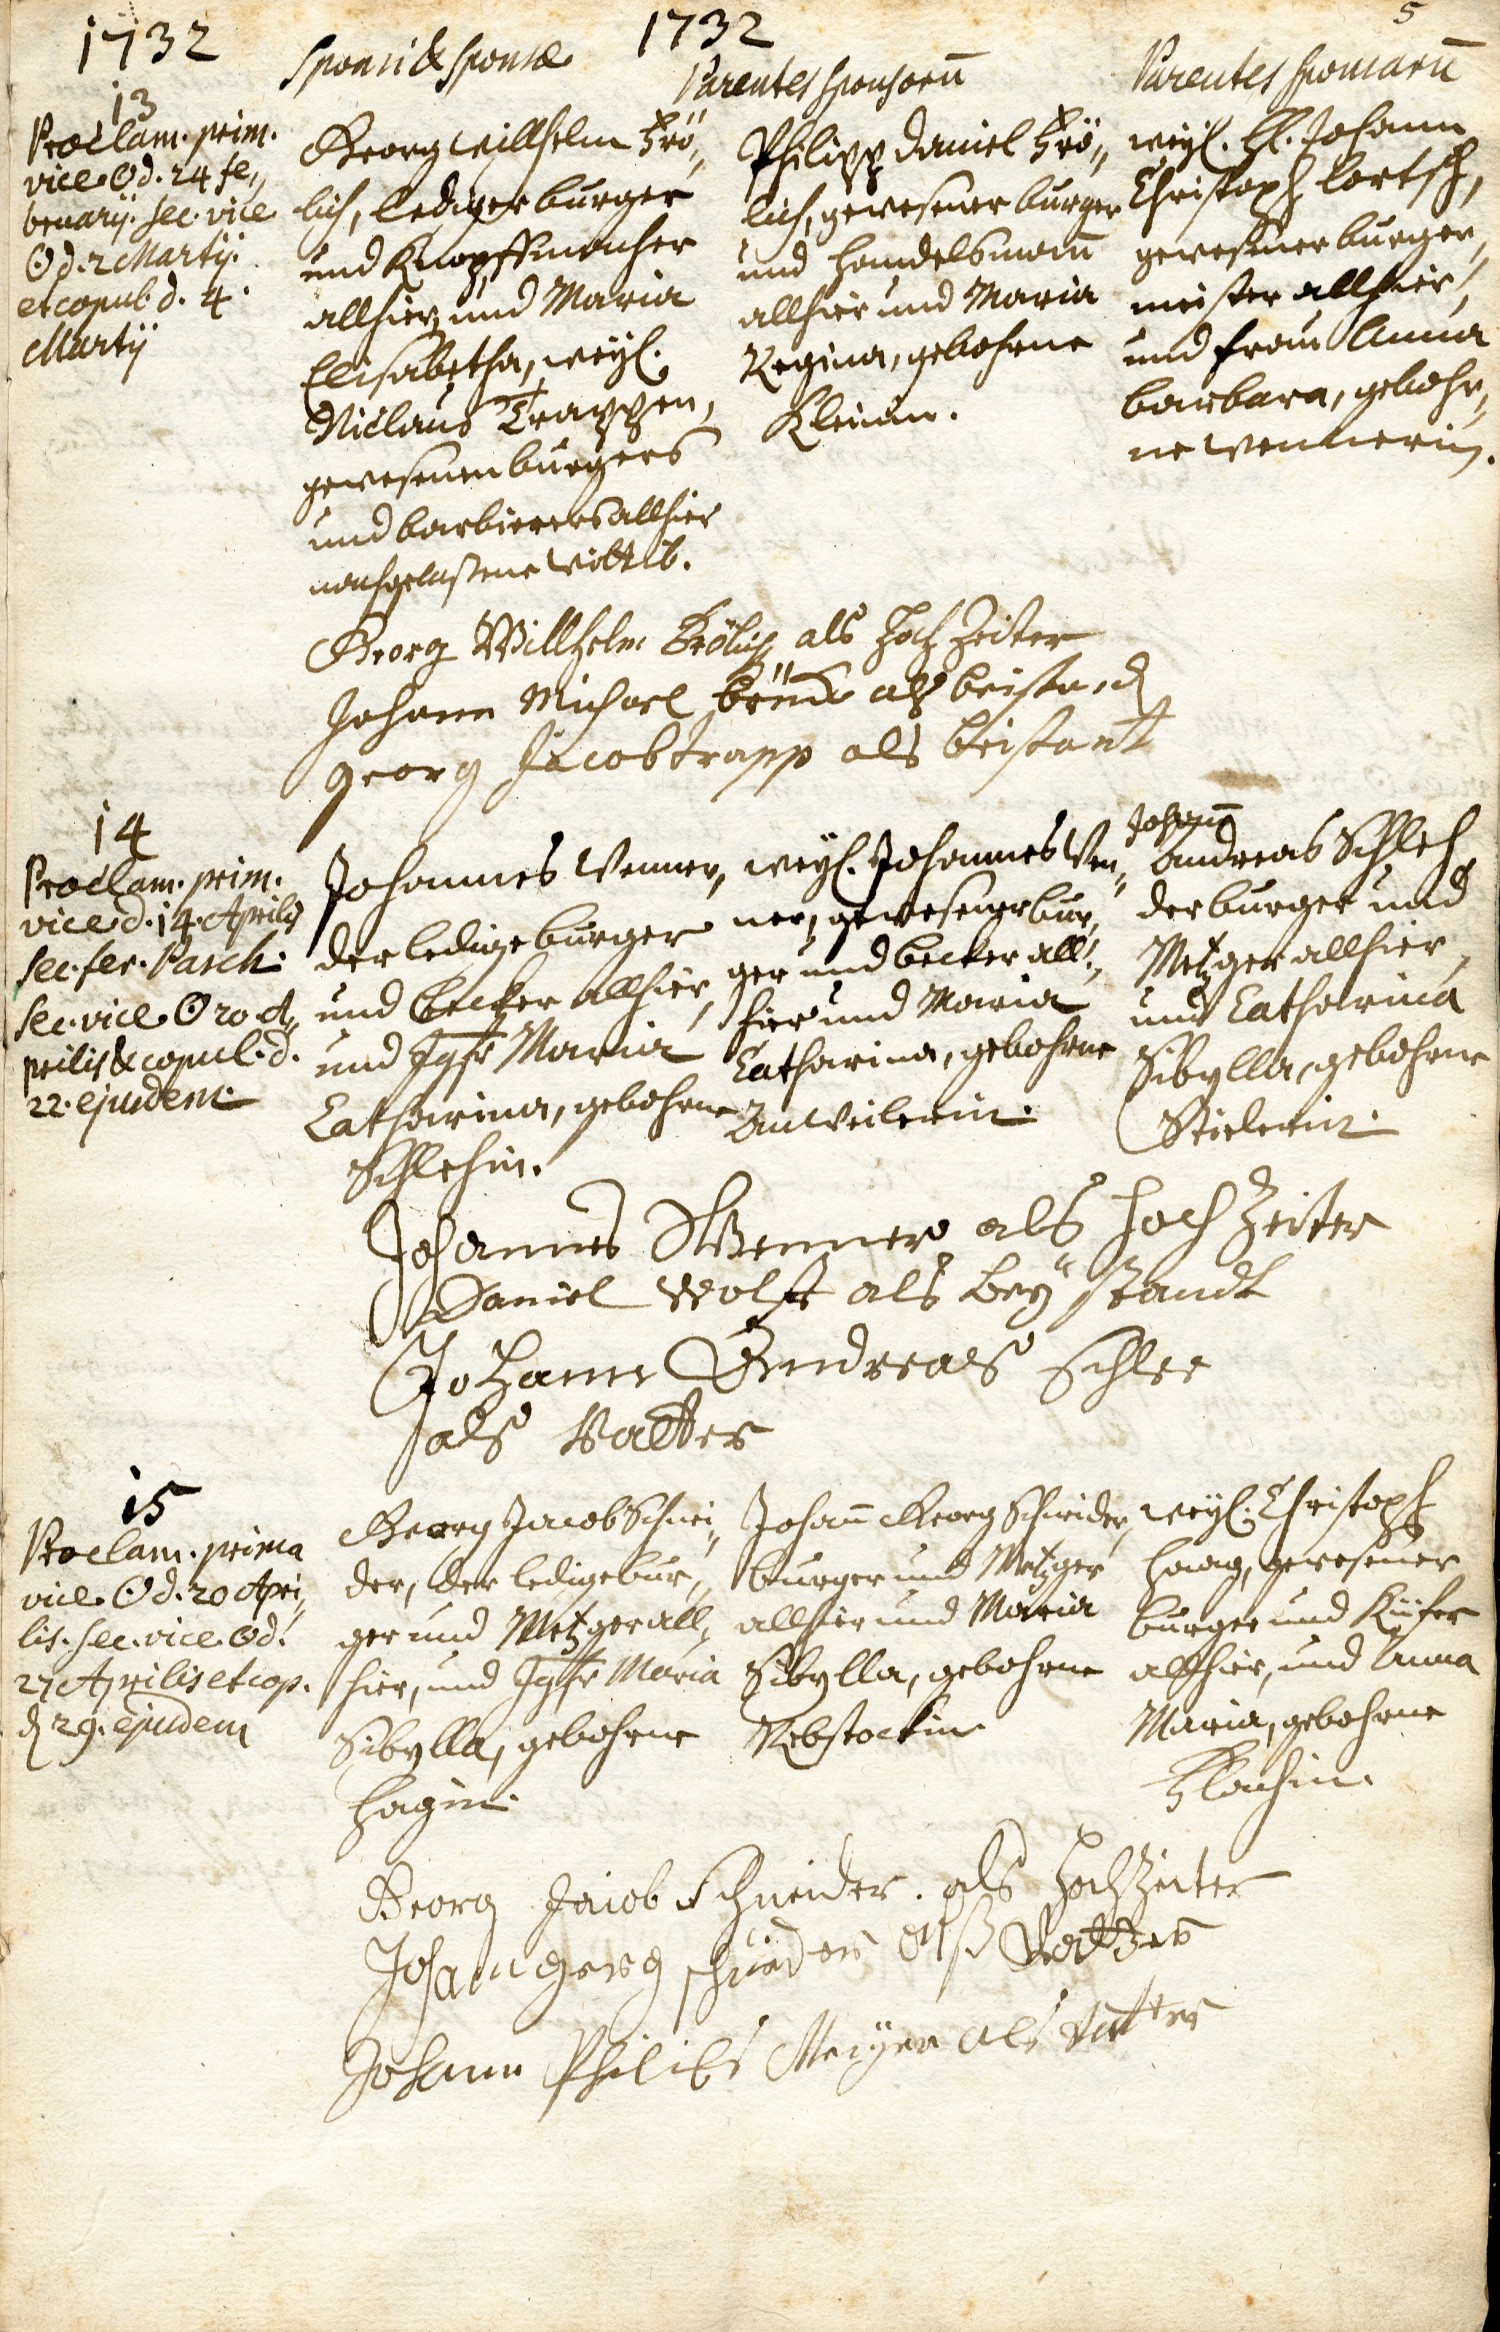 1732
1732
5
Sponsi & Sponsæ
Parentes Sponsorū
Parentes Sponsarū
13
Proclam. prim.
vice ⊙ d. 24 fe„
bruarij. sec. vice
⊙ d. 2 Martij.
et copul. d. 4.
Martij
Georg Willhelm Frö„
lich, lediger burger
und Knopffmacher
allhier, und Maria
Elisabetha, weyl.
Niclaus Trappen,
gewesenen burgers
und barbierers allhier
nachgelaßene Wittib.
Philipp Daniel Frö„
lich, gewesener burger
und Handelsmañ
allhier und Maria
Regina, gebohrne
Kleinin.
weyl. H. Johann
Christoph Lortsch,
gewesener burger„
meister allhier,
und Frau Anna
Barbara, gebohr„
ne Wennerin.
Georg Willhelm Frölich als Hoch Zeiter
Johann Michael als beistand
Georg Jacob trapp als beistant
14
Proclam. prim.
vice d. 14. Aprilis
sec. fer. Pasch.
sec. vice ⊙ 20 A„
prilis & copul. d.
22. ejusdem.
Johannes Wenner,
der ledige burger
und becker allhier,
und Jgfr Maria
Catharina, gebohrne
Schlehin.
weyl. Johannes Wen„
ner, gewesener bur„
ger und becker all„
hier und Maria
Catharina, gebohrne
Anweilerin.
Johañ
Andreas Schleh
der burger und
Metzger allhier,
und Catharina
Sibylla, gebohrne
Stielerin.
Johannes Wenner als Hoch Zeiter
Daniel Wolff als bey standt
Johann Andreas Schlee
als Vatter
15
Proclam. prima
vice ⊙ d. 20 Apri„
lis. sec. vice ⊙ d.
27 Aprilis et cop.
d 29. ejusdem
Georg Jacob Schnei„
der, der ledige bur„
ger und Metzger all„
hier, und Jgfr Maria
Sibylla, gebohrne
Hagin.
Johañ Georg Schneider,
burger und Metzger
allhier und Maria
Sibylla, gebohrne
Rebstockin
weyl. Christoph
Haag, gewesener
burger und Küfer
allhier, und Anna
Maria, gebohrne
Georg Jacob Schneider. als Hochzeiter
Johann Georg Schneider alß Vatter
Johann Philibs Meÿer als Vatter